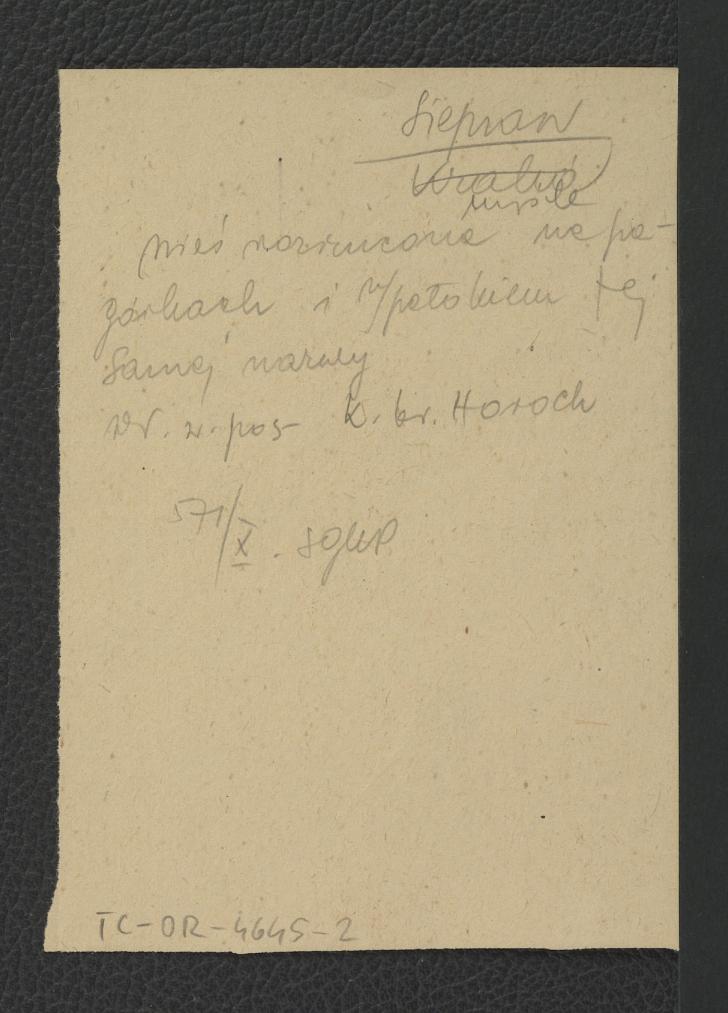 Siepraw
Kraków
myśle
wieś rozrzucona na pa-
górkach i n/potokiem tej
samej nazwy
Wł. w. pos- K. br. Horoch
571/X. SGKP
TC-OR-4645-2